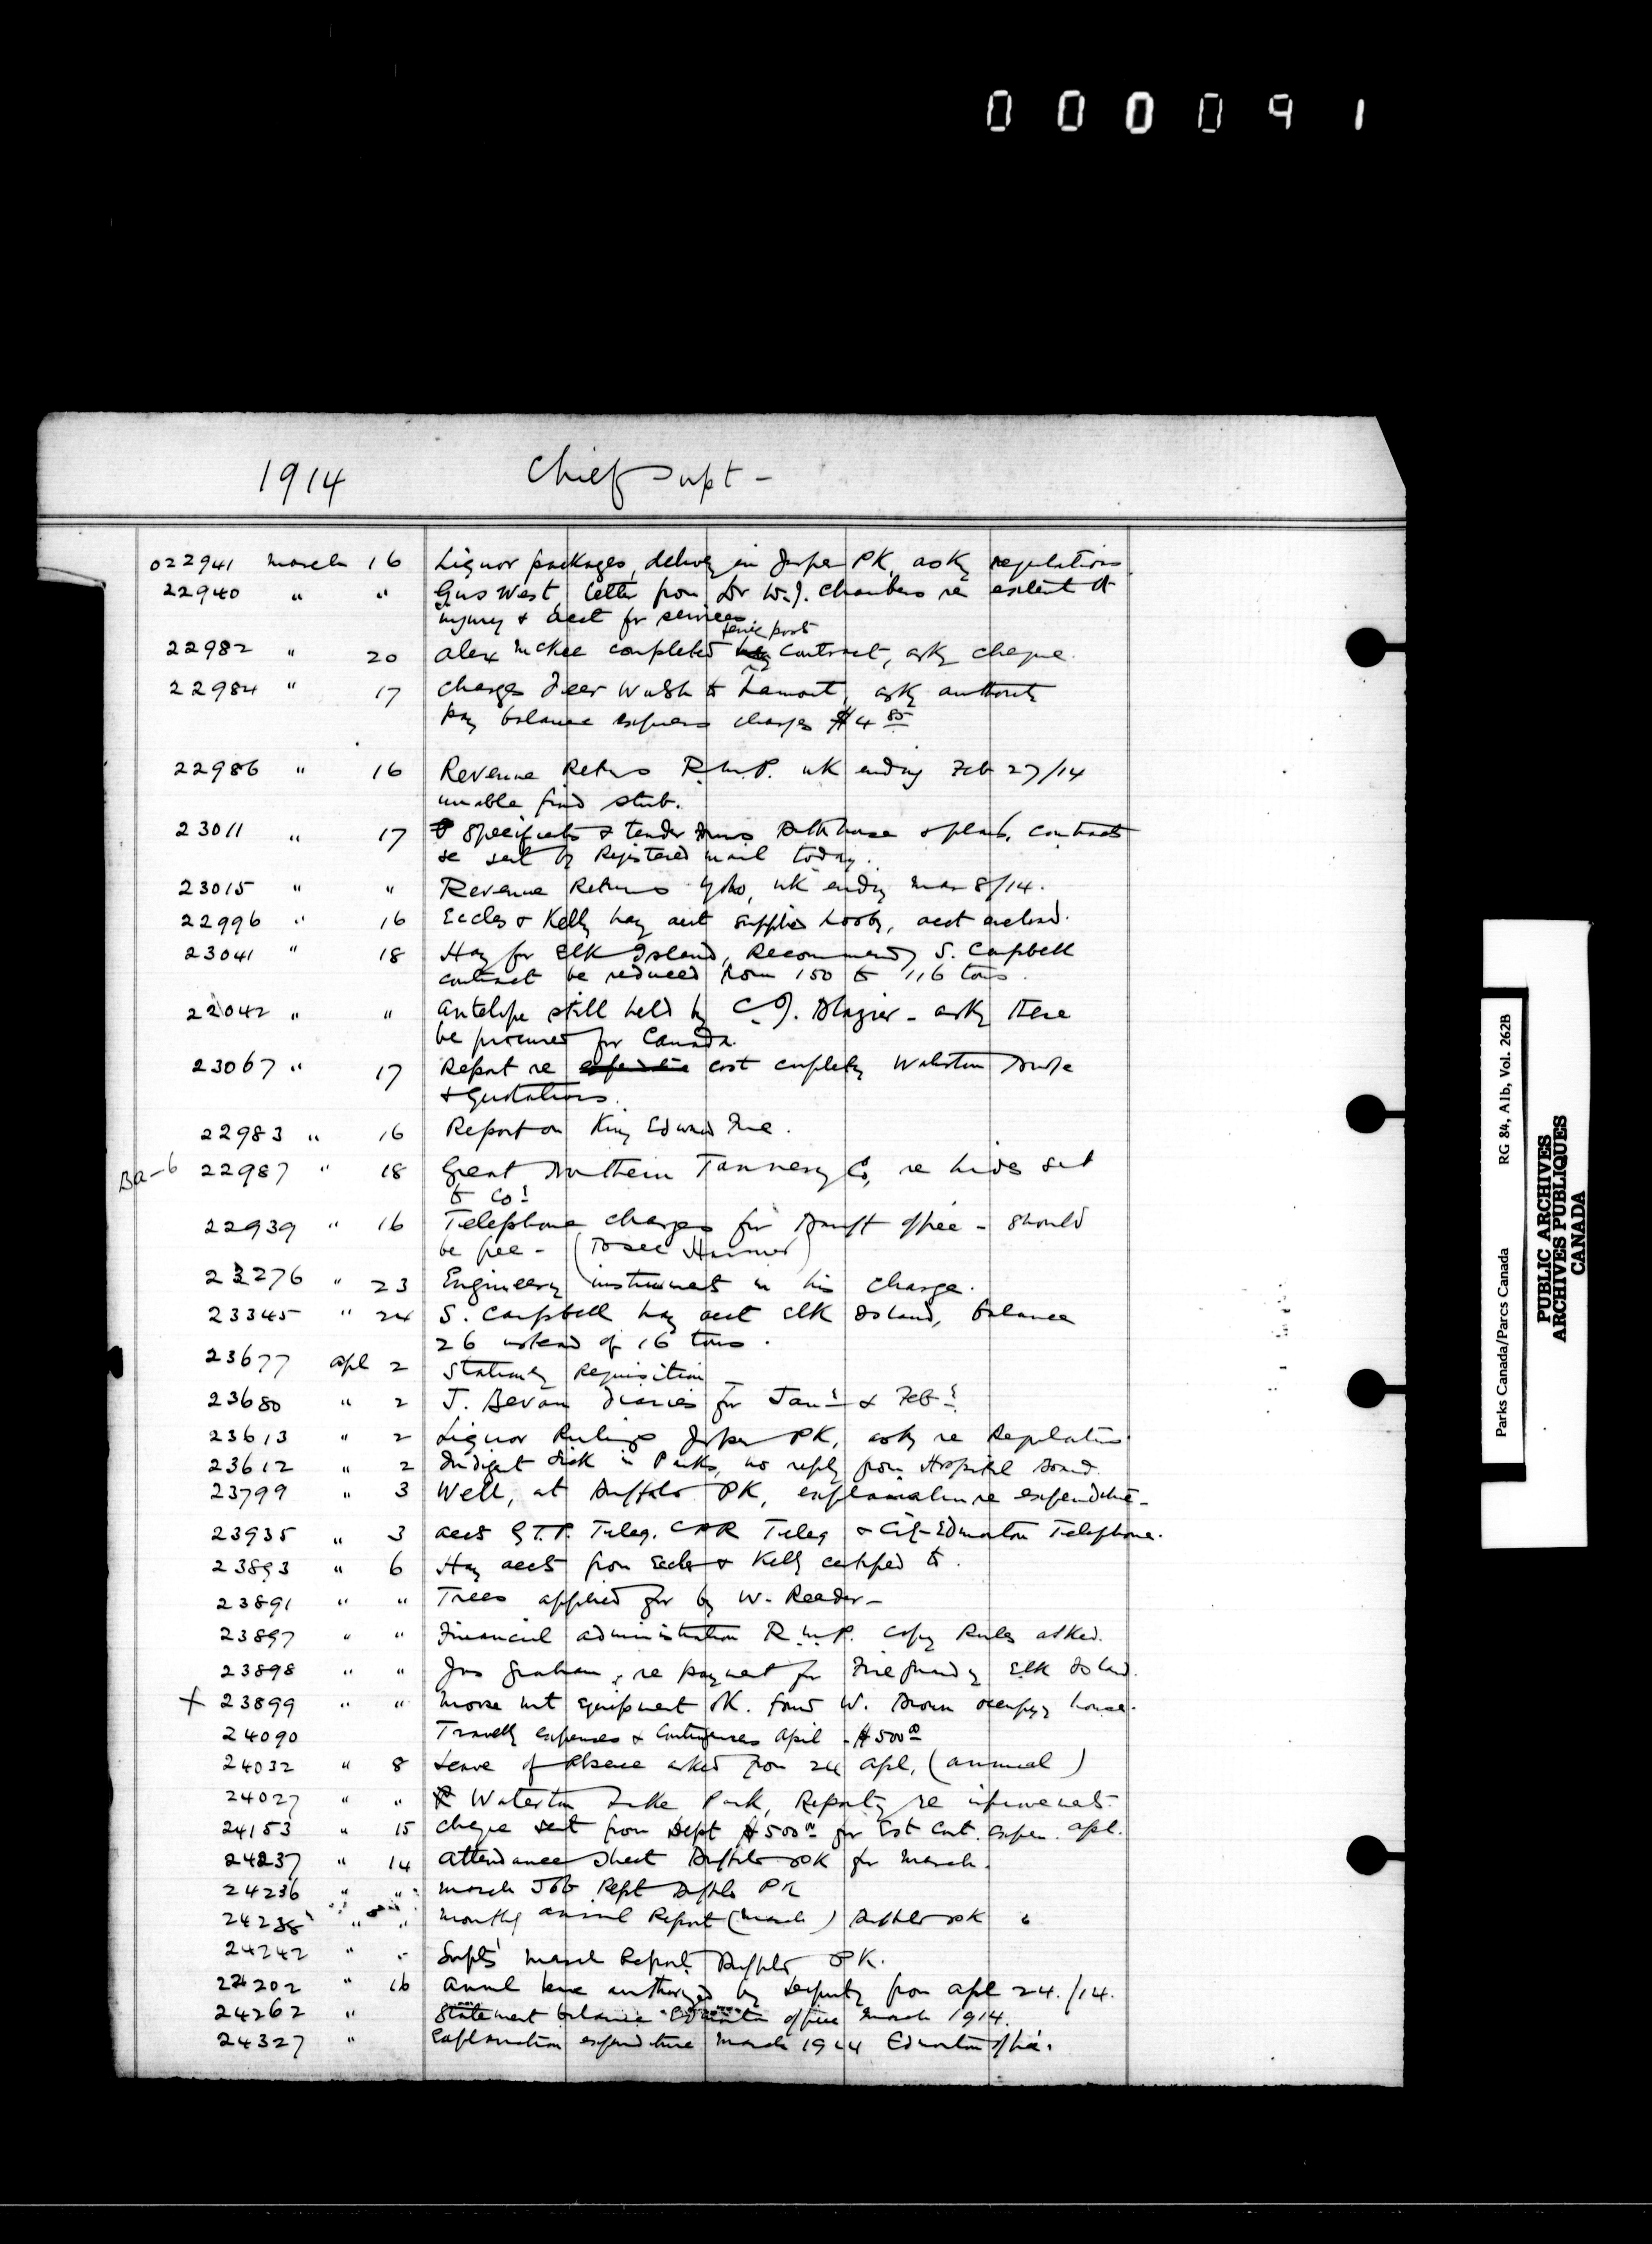 000091
1914 Chief Supt -
022941 March 16 Liquor packages, delivery in Jasper PK, asks regulations
22940 " " Gus West letter from Dr W.J. Chambers re extent of
injury & acct for services
fence posts
22982 " 20 Alex McKee completed hay contract, asks cheque.
22984 " 17 Charges Deer Walsh to Lamont, asks authority
pay balance express charges $4 85
22986 " 16 Revenue Returns R.M.P. wk ending Feb 27/14
unable find stub.
23011 " 17 Specificats & tender forms Bathhouse & plans, contracts
se sent by Registered mail today.
23015 " " Revenue Returns Yoho, wk ending Mar 8/14.
22996 " 16 Eccles & Kelly hay acct supplies, acct enclosed.
23041 " 18 Hay for Elk Island, Recommends S. Campbell
contract be reduced from 150 to 116 tons.
22042 " " Antelope still held by C.J. Blazier - asks these
be procured for Canada.
23067 " 17 Report re cost completing
& Quotations.
22983 " 16 Report on King Edward Mine.
Ba-6 22987 " 18 Great Northern Tannery Co, re hides sent
to Co:
22939 " 16 Telephone charges for Banff office - should
be free - (To see Harmer)
23276 " 23 Engineering instruments in his charge.
23345 " 24 S. Campbell hay acct Elk Island, balance
26 instead of 16 tons.
23677 Apl 2 Stationery Requisition
23680 " 2 J. Bevan Diaries for Jany & Feby
23613 " 2 Liquor Rulings Jasper PK, asks re Regulations
23612 " 2 Indigent Sick in Parks, no reply from Hospital Board.
23799 " 3 Well, at Buffalo PK, explanation re expenditure -
23935 " 3 accts G.T.P. Teleg. CNR Teleg & City Edmonton Telephone.
23893 " 6 Hay accts from Eccles & Kelly certified to.
23891 " " Trees applied for by W. Reader -
23897 " " Financial administration R.M.P. copy Rules asked.
23898 " " Jno Graham, re payment for Fireguarding Elk Island.
+ 23899 " " Moose Mt equipment OK. found W. Brown occupying house.
24090 Travellg expenses & Contingencies April - $500 00
24032 " 8 Leave of Absence asked from 24 Apl, (annual)
24027 " " Waterton Lake Park, Reporting re improvements.
24153 " 15 Cheque sent from Dept $500 00 for Est Cont. Expen. Apl.
24237 " 14 Attendance Sheet Buffalo PK for March.
24236 " " March Job Rept Buffalo PK
24238 " " Monthly animal Report (March) Buffalo PK
24242 " " Supts' March Report Buffalo PK.
24202 " 16 Annual leave authorized by Deputy from Apl 24./14.
24262 " Statement balance Edmonton office March 1914.
24327 " Explanation expenditure March 1914 Edmonton office.
Parks Canada/Parcs Canada RG 84, Alb, Vol. 262B
PUBLIC ARCHIVES
ARCHIVES PUBLIQUES
CANADA